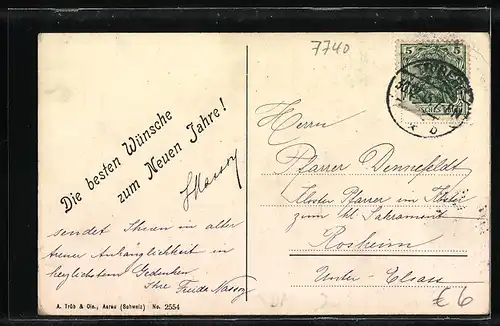 7740
5 5
Die besten Wünsche
zum Neuen Jahre!
sendet Ihnen in alter
treuer Anhänglichkeit in
herzlichstem Gedenken
Ihre Frieda Nassoy
A. Trüb & Cie., Aarau (Schweiz) No. 2554
Herrn
Pfarrer Dennefeldt
Kloster Pfarrer im Kloster
zum hl. Sakrament
Rosheim
Unter-Elsass
€6